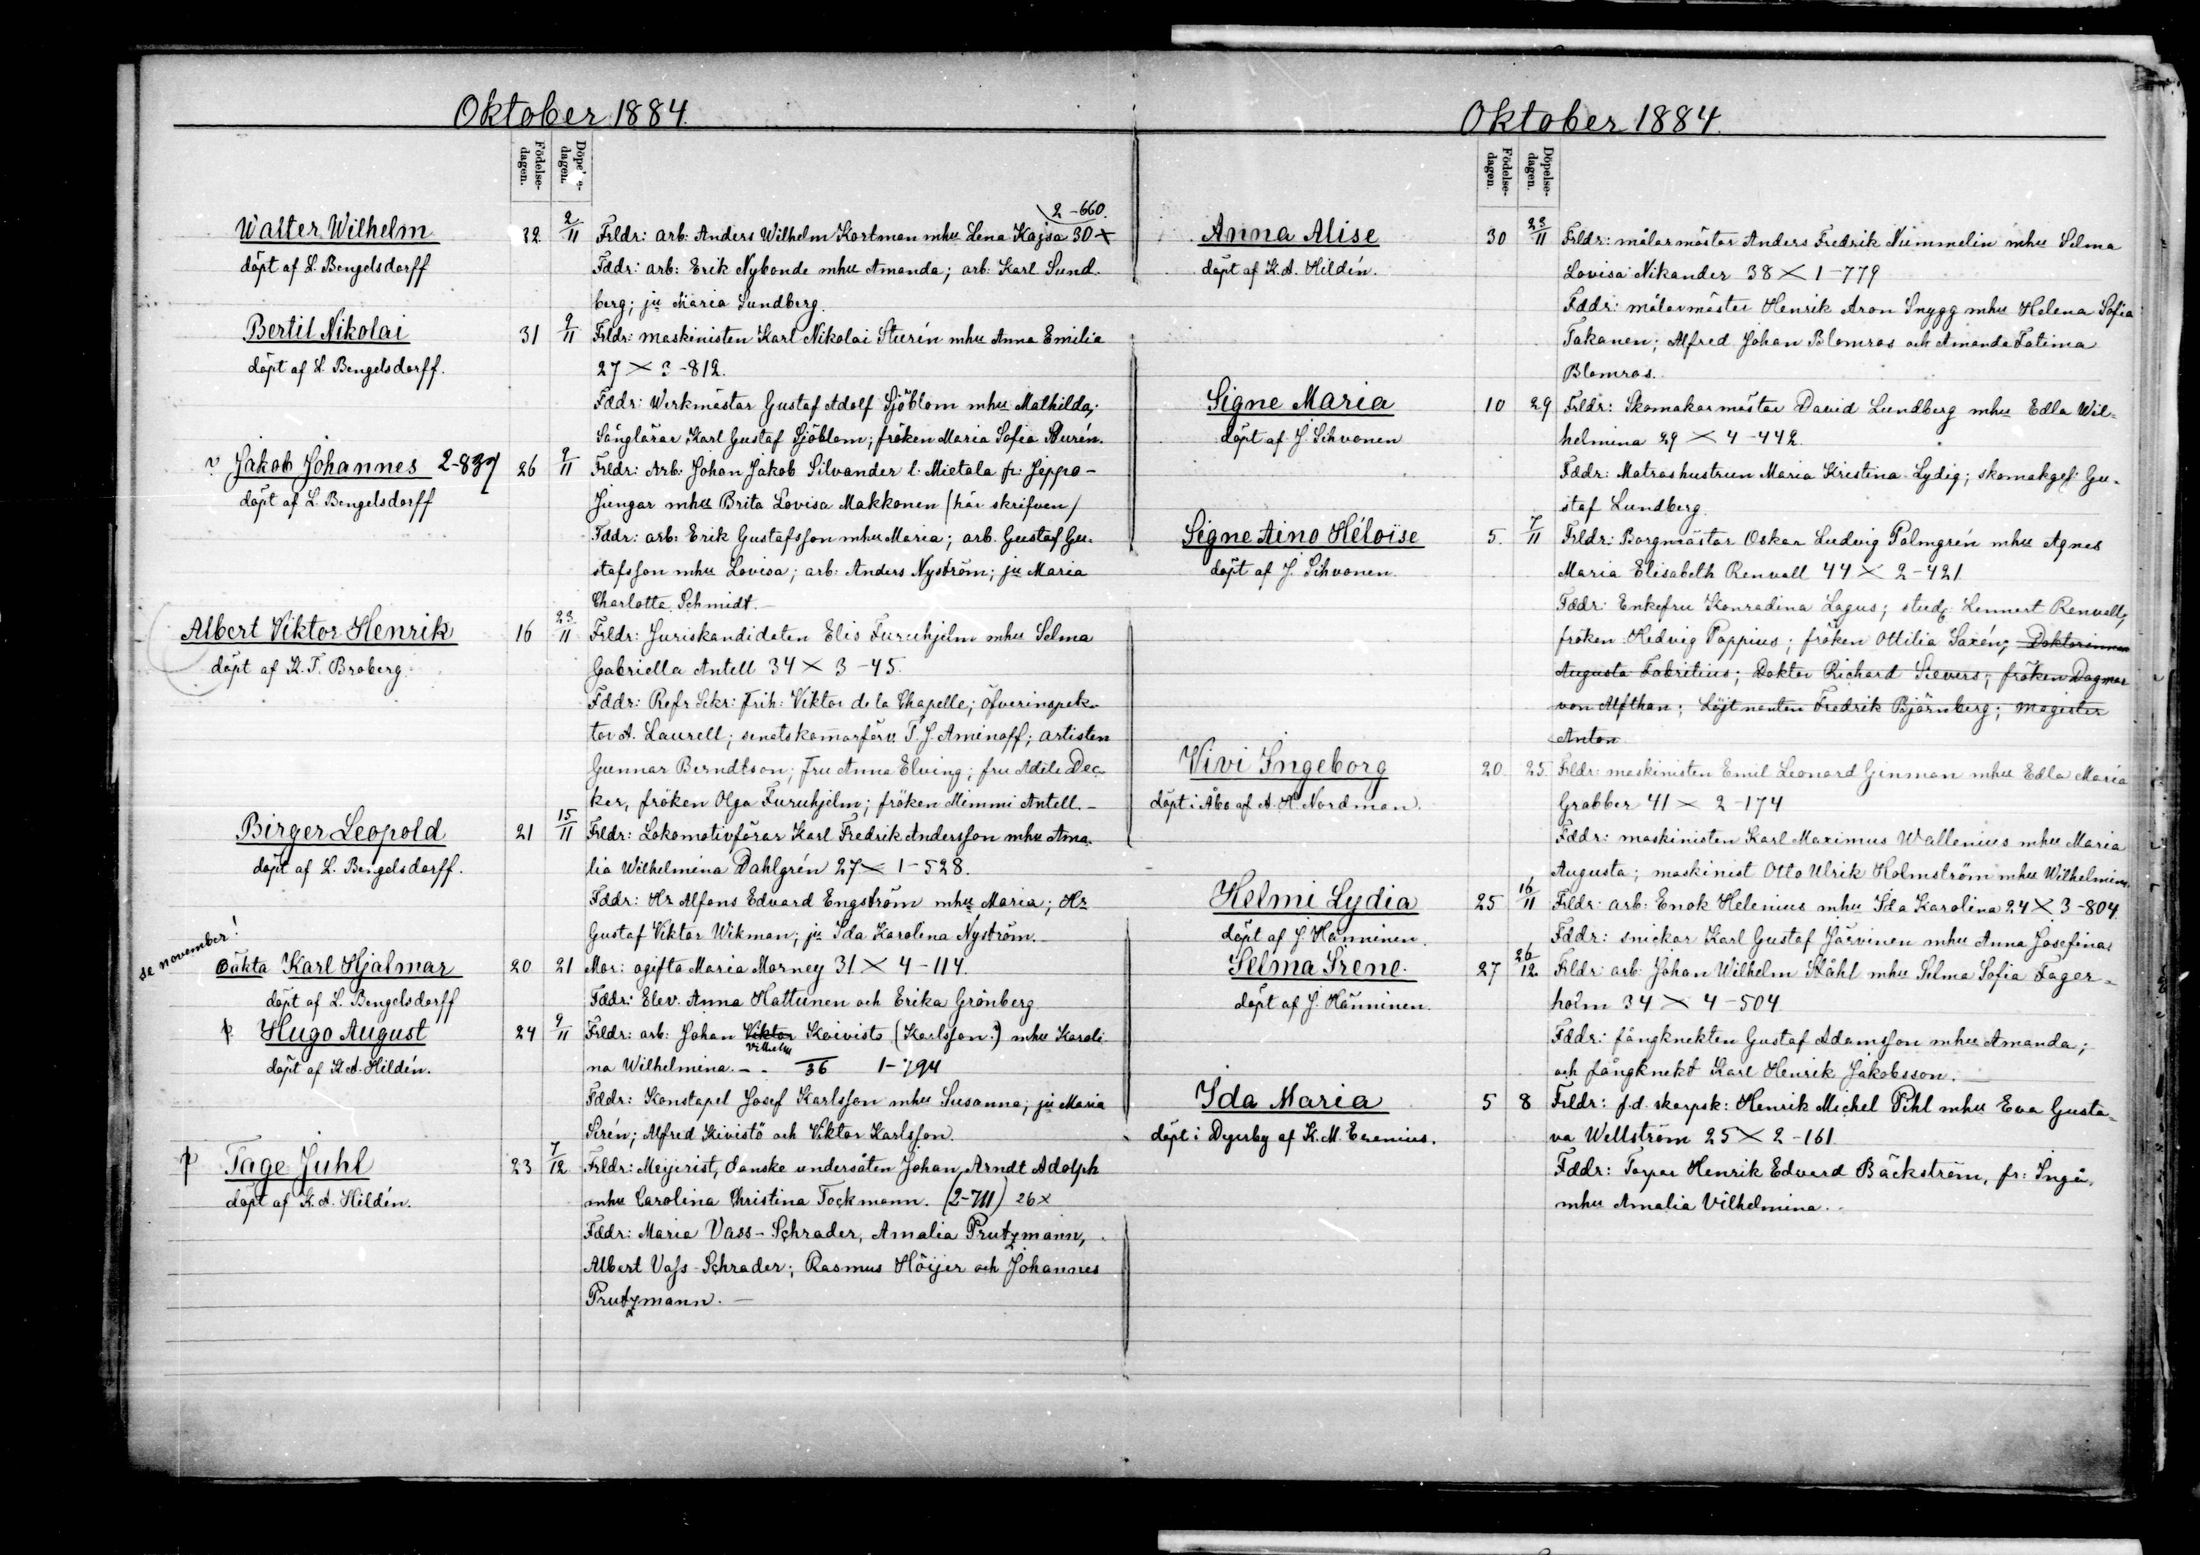 Oktober 1884.
Födelse-
dagen.
Walter Wilhelm
döpt af L. Bengelsdorff
2/11
2-660.
Frldr: arb: Anders Wilhelm Kortman mhu Lena Kajsa 30 ×
Fddr: arb: Erik Nybonde mhu Amanda; arb: Karl Sund-
berg; ju Maria Sundberg.
Bertil Nikolai
döpt af L. Bengelsdorff.
31 9/11 Frldr: maskinisten Karl Nikolai Sturén mhu Anna Emilia
27 × 3-812.
Fddr: Werkmästar Gustaf Adolf Sjöblom mhu Mathilda;
Sånglärar Karl Gustaf Sjöblom; fröken Maria Sofia Sturén.
v Jakob Johannes 2-837
döpt af L. Bengelsdorff
26 9/11 Frldr: Arb: Johan Jakob Silvander l. Mietala fr: Jeppo-
Jungar mhu Brita Lovisa Makkonen (här skrifven)
Fddr: arb: Erik Gustafsson mhu Maria; arb. Gustaf Gu-
stafsson mhu Lovisa; arb: Anders Nyström; ju Maria
Charlotta Schmidt.-
Albert Viktor Henrik
döpt af K. T. Broberg.
16 23/11 Frldr: Juriskandidaten Elis Furuhjelm mhu Selma
Gabriella Antell 34 × 3-45.
Fddr: Refr Sekr: Frih: Viktor de la Chapelle; öfverinspek-
tor A. Laurell; senatskamarförv. T. J. Aminoff; artisten
Gunnar Berndtson; fru Anna Elving; fru Adéle Dec-
ker, fröken Olga Furuhjelm; fröken Mimmi Antell.-
Birger Leopold
döpt af L. Bengelsdorff.
21 15/11 Frldr: Lokomotivförar Karl Fredrik Andersson mhu Ama-
lia Wilhelmina Dahlgrén 27 × 1-528.
Fddr: Hr Alfons Edvard Engström mhu Maria; Hr
Gustaf Viktor Wikman; ju Ida Karolina Nyström.-
se november!
Oäkta Karl Hjalmar
döpt af L. Bengelsdorff
20 21 Mor: ogifta Maria Morney 31 × 4-114.
Fddr: Elev. Anna Hattunen och Erika Grönberg
Hugo August
döpt af K. A. Hildén.
24 9/11 Frldr: arb: Johan Viktor Koivisto (Karlsson.) mhu Karoli-
Vilhelm
na Wilhelmina.- 36 1-794
Fddr: Konstapel Josef Karlsson mhu Susanna; ju Maria
Sirén; Alfred Kivistö och Viktor Karlsson.
Tage Juhl
döpt af K. A. Hildén.
23 7/12 Frldr: Meijerist, danske undersåten Johan Arndt Adolph
mhu Carolina Christina Tockmann. (2-711) 26×
Fddr: Maria Vass-Schrader, Amalia Prutzmann,
Albert Vass-Schrader; Rasmus Höijer och Johannes
Prutzmann.-
Oktober 1884.
Födelse-
dagen.
Döpelse-
dagen.
Anna Alise
döpt af K. A. Hildén.
30 23/11 Frldr: målarmästar Anders Fredrik Nummelin mhu Selma
Lovisa Nikander 38 × 1-779
Fddr: målarmästar Henrik Aron Snygg mhu Helena Sofia
Takanen; Alfred Johan Blomros och Amanda Fatima
Blomros.
Signe Maria
döpt af J. Sihvonen
10 29 Frldr: Skomakarmästar David Lundberg mhu Edla Wil-
helmina 29 × 4-442.
Fddr: Matroshustrun Maria Kristina Lydig; skomakgef. Gu-
staf Lundberg.
Signe Aino Héloïse
döpt af J. Sihvonen.
5. 7/11 Frldr: Borgmästar Oskar Ludvig Palmgrén mhu Agnes
Maria Elisabeth Renvall 44 × 2-421
Fddr: Enkefru Konradina Lagus; stud. Lennart Renvall,
fröken Hedvig Poppius; fröken Ottilia Saxén; Doktorinnan
Augusta Fabritius; Doktor Richard Sievers; fröken Dagmar
von Alfthan; Löjtnanten Fredrik Björnberg; Magister
Anton
Vivi Ingeborg
döpt i Åbo af A. H. Nordman.
20 25 Frldr: maskinisten Emil Leonard Ginman mhu Edla Maria
Grabber 41 × 2-174
Fddr: maskinisten Karl Maximus Wallenius mhu Maria
Augusta; maskinist Otto Ulrik Holmström mhu Wilhelmina.
Helmi Lydia
döpt af J. Hänninen.
25 16/11 Frldr: arb: Enok Helenius mhu Ida Karolina 24 × 3-804
Fddr: snickar Karl Gustaf Järvinen mhu Anna Josefina
Selma Irene.
döpt af J. Hänninen.
27 26/12 Frldr: arb: Johan Wilhelm Ståhl mhu Selma Sofia Fager-
holm 34 × 4-504
Fddr: fångknekten Gustaf Adamsson mhu Amanda;
och fångknekt Karl Henrik Jakobsson.-
Ida Maria
döpt i Degerby af K. M. Erenius.
5 8 Frldr: f.d. skarpsk: Henrik Michel Pihl mhu Eva Gusta-
va Wellström 25 × 2-161
Fddr: Torpar Henrik Edvard Bäckström, fr: Ingå,
mhu Amalia Vilhelmina.